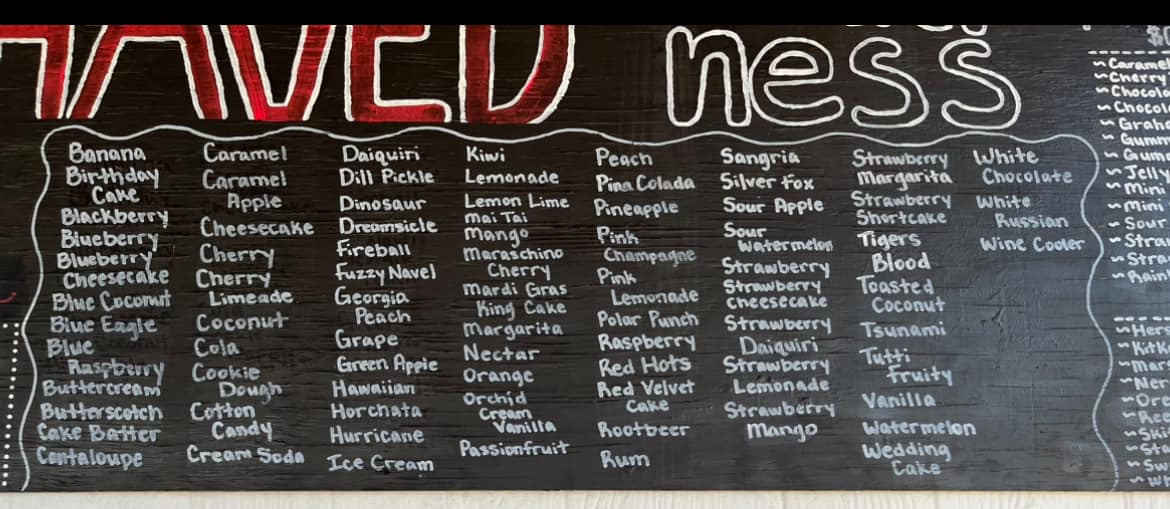 HAVED
ness
Banana
Birthday
Cake
Blackberry
Blueberry
Blueberry
Cheesecake
Blue Coconut
Blue Eagle
Blue
Raspberry
Buttercream
Butterscotch
Cake Batter
Cantaloupe
Caramel
Caramel
Apple
Cheesecake
Cherry
Cherry
Limeade
Coconut
Cola
Cookie
Dough
Cotton
Candy
Cream Soda
Daiquiri
Dill Pickle
Dinosaur
Dreamsicle
Fireball
Fuzzy Navel
Georgia
Peach
Grape
Green Apple
Hawaiian
Horchata
Hurricane
Ice Cream
Kiwi
Lemonade
Lemon Lime
Mai Tai
Mango
Maraschino
Cherry
Mardi Gras
King Cake
Margarita
Nectar
Orange
Orchid
Cream
Vanilla
Passionfruit
Peach
Pina Colada
Pineapple
Pink
Champagne
Pink
Lemonade
Polar Punch
Raspberry
Red Hots
Red Velvet
Cake
Rootbeer
Rum
Sangria
Silver Fox
Sour Apple
Sour
Watermelon
Strawberry
Strawberry
Cheesecake
Strawberry
Daiquiri
Strawberry
Lemonade
Strawberry
Mango
Strawberry
Margarita
Strawberry
Shortcake
Tigers
Blood
Toasted
Coconut
Tsunami
Tutti
Fruity
Vanilla
Watermelon
Wedding
Cake
White
Chocolate
White
Russian
Wine Cooler
~Caramel
~Cherry
~Chocol
~Chocol
~Grah
~Gumm
~Gum
~Jelly
~Mini
~Mini
~Sour
~Stra
~Stra
~Rain
~Hers
~Kitk
~Mar
~Ner
~Ore
~Ree
~Ski
~Sta
~Sw
~Wh